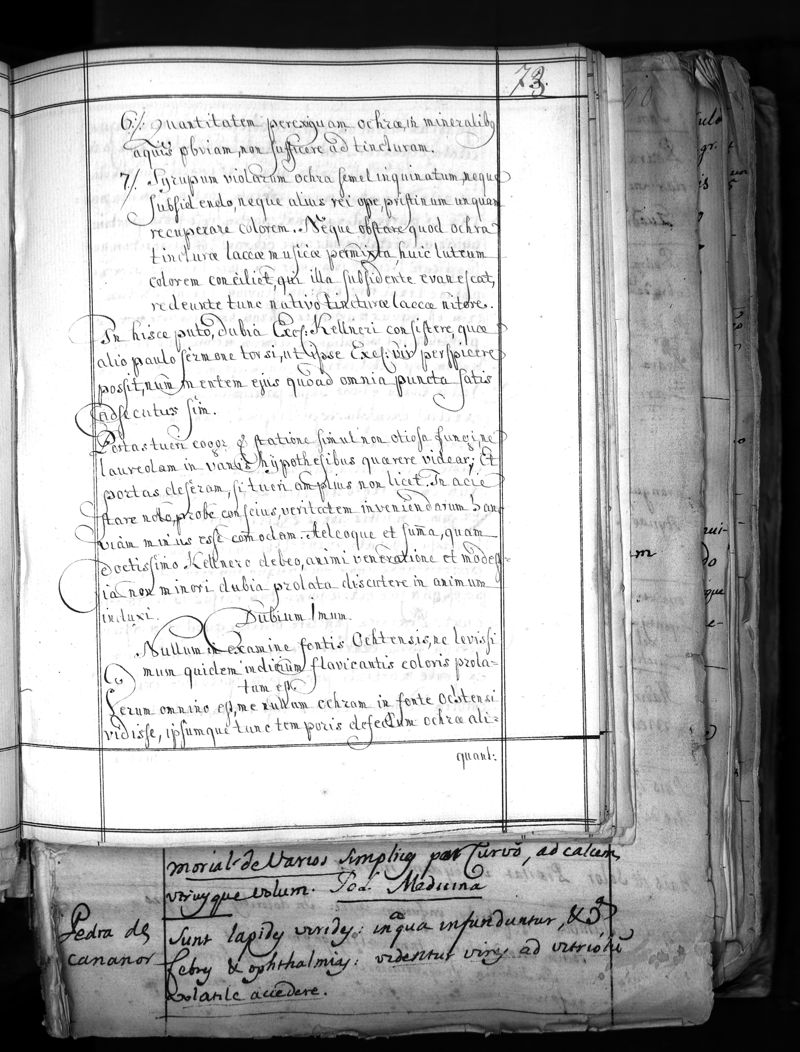 73.
6:/: Quantitatem perexiguam ochræ, in mineralibus
aquis obviam, non sufficere ad tincturam.
7/. Syrupum violarum ochra semel inquinatum, neque
subsidendo, neque alius rei ope pristinum unquam
recuperare colorem. Neque obstare quod ochra
tincturæ laccæ musicæ permixta, huic luteum
colorem conciliet, qui illa subsidente evanescat,
redeunte tunc nativo tincturæ laccæ nitore.
In hisce puto, dubia Exc: Kellneri consistere, quæ
alio paulo sermone torsi, ut ipse Exc: vir perspicere
possit, num mentem ejus quoad omnia puncta satis
adsecutus sim.
Portas tueri cogor & statione simul non otiosa fungi, ne
laureolam in vanis hypothesibus quærere videar; Et
portas deseram, si tueri amplius non licet. In acie
stare nolo, probe conscius, veritatem inveniendarum hanc
viam minus esse comodam. Aeleoque et suma, quam
doctissimo Kellnero debeo, animi veneratione et modes-
tia non minori dubia prolata discutere in animum
induxi. Dubium 1mum.
Nullum in examine fontis Ochtensis, ne levissi
mum quidem indicium flavicantis coloris prola-
tum est.
Verum omnino est, me nullam ochram in fonte Ochtensi
vidisse, ipsumque tunc temporis defectum ochræ ali-
quant:
morial. de Varios simplices par Curvo, ad calcem
utriusque volum. Medicina
Pedra de
cananor
Sunt lapides virides: in aqua infunduntur, &
febres & ophthalmias: videntur vires ad vitriolum
volatile accedere.